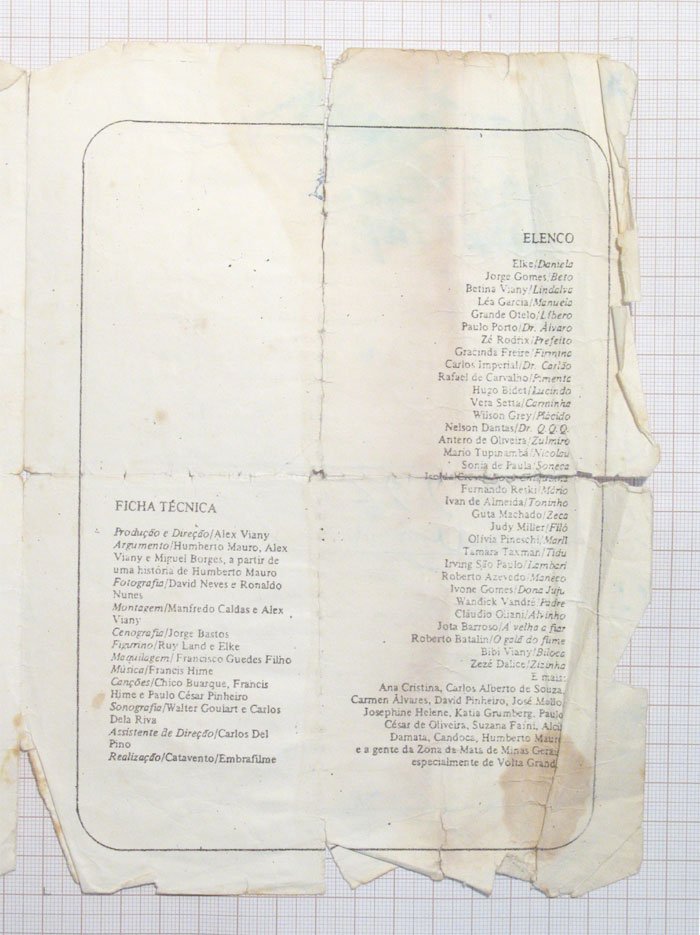 ELENCO
Elke/Daniela
Jorge Gomes/Beto
Betina Viany/Lindalva
Léa Garcia/Manuela
Grande Otelo/Líbero
Paulo Porto/Dr. Álvaro
Zé Rodrix/Prefeito
Gracinda Freire/Firmina
Carlos Imperial/Dr. Carlão
Rafael de Carvalho/Pimenta
Hugo Bidet/Lucindo
Vera Setta/Carminha
Wilson Grey/Plácido
Nelson Dantas/Dr. Q.Q.Q.
Antero de Oliveira/Zulmiro
Mario Tupinambá/Nicolau
Sonia de Paula/Soneca
Fernando Reski/Mário
Ivan de Almeida/Toninho
Guta Machado/Zeca
Judy Miller/Filó
Olívia Pineschi/Maril
Tamara Taxman/Tidu
Irving São Paulo/Lambari
Roberto Azevedo/Maneco
Ivone Gomes/Dona Juju
Wandick Vandré/Padre
Cláudio Oliani/Alvinho
Jota Barroso/A velha a fiar
Roberto Batalin/O galã do filme
Bibi Viany/Biloca
Zezé Dalice/Zizinha
E mais:
Ana Cristina, Carlos Alberto de Souza,
Carmen Álvares, David Pinheiro, José Mello,
Josephine Helene, Katia Grumberg, Paulo
César de Oliveira, Suzana Faini,
Damata, Candoca, Humberto Mauro
e a gente da Zona da Mata de Minas Gerais
especialmente de Volta Grande
FICHA TÉCNICA
Produção e Direção/Alex Viany
Argumento/Humberto Mauro, Alex
Viany e Miguel Borges, a partir de
uma história de Humberto Mauro
Fotografia/David Neves e Ronaldo
Nunes
Montagem/Manfredo Caldas e Alex
Viany
Cenografia/Jorge Bastos
Figurino/Ruy Land e Elke
Maquilagem/Francisco Guedes Filho
Música/Francis Hime
Canções/Chico Buarque, Francis
Hime e Paulo César Pinheiro
Sonografia/Walter Goulart e Carlos
Dela Riva
Assistente de Direção/Carlos Del
Pino
Realização/Catavento/Embrafilme